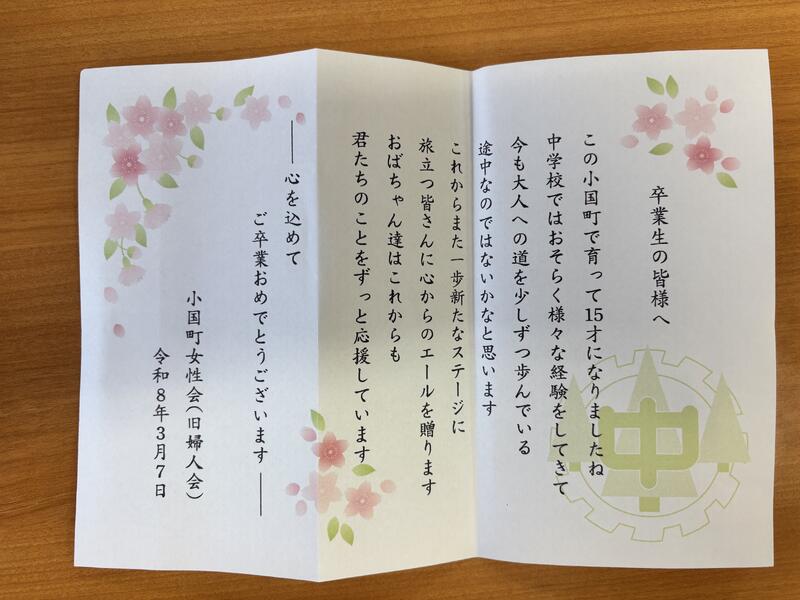 卒業生の皆様へ
この小国町で育って15才になりましたね
中学校ではおそらく様々な経験をしてきて
今も大人への道を少しずつ歩んでいる
途中なのではないかなと思います
これからまた一歩新たなステージに
旅立つ皆さんに心からのエールを贈ります
おばちゃん達はこれからも
君たちのことをずっと応援しています
――心を込めて
ご卒業おめでとうございます――
小国町女性会(旧婦人会)
令和8年3月7日
中